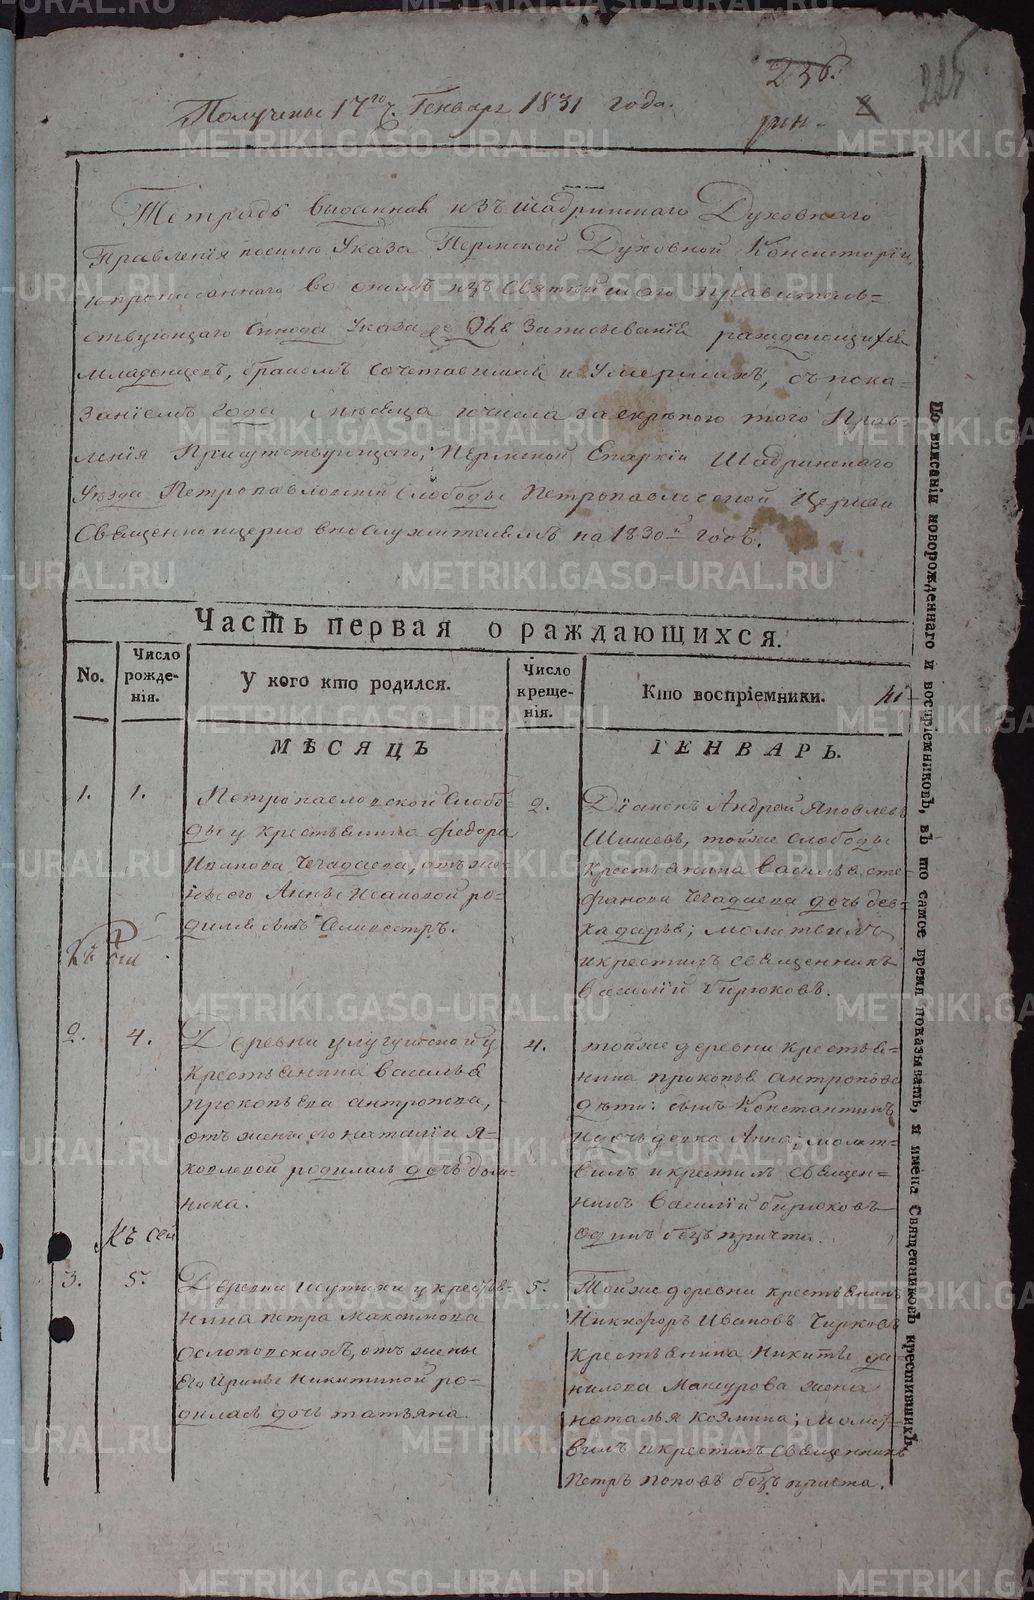 236.
225
Получены 17го ч. Генваря 1831 года.
Тетрадь выданная изъ Шадринскаго Духовнаго
Правленія посилѣ Указа Пермской Духовной Консисторіи,
и прописаннаго во ономъ изъ Святѣйшаго правитель-
ствующаго Синода Указа для Записыванія раждающихся
младенцевъ, бракомъ сочетавшихся и Умершихъ, съ пока-
заніемъ года мѣсяца и числа за скрѣпою того Прав-
ленія Присутствующаго; Пермской Епархіи Шадринскаго
Уѣзда Петропавловской Слободы Петропавловской Церкви
Священноцерковнослужителямъ на 1830й годъ.
Часть первая о раждающихся.
No.
Число рожде-нія.
У кого кто родился.
Число креще-нія.
Кто воспріемники.
МѢСЯЦЪ
ГЕНВАРЬ.
1.
1.
Петропавловской Слобо-
ды у крестьянина Федора
Иванова Чегадаева, отъ же-
ны его Анны Исаковой ро-
дился сынъ Селивестръ.
2.
Діаконъ Андрей Яковлевъ
Шишевъ, тойже Слободы
крестьянина Василья Сте-
фанова Чегадаева дочь дев-
ка Дарья; молитвилъ
и крестилъ священникъ
Василій Бирюковъ.
2.
4.
Деревни Улугушской у
крестьянина Василья
Прокопьева Антропова,
отъ жены его Наталіи Я-
ковлевой родилась дочь Дом-
ника.
4.
тойже деревни крестья-
нина Прокопья Антропова
дѣти: сынъ Константинъ
и дочь девка Анна; молит-
вилъ и крестилъ священ-
никъ Василій Бирюковъ
одинъ безъ причта.
Къ сей
3.
5.
Деревни Шутихи у крестья-
нина Петра Максимова
Ослоповскихъ, отъ жены
Его Ирины Никитиной ро-
дилась дочь Татьяна.
5.
Тойже деревни крестьянинъ
Никифоръ Ивановъ Чирковъ
крестьянина Никиты Да-
нилова Мансурова жена
Наталья Козмина; молит-
вилъ и крестилъ священникъ
Петръ Поповъ безъ причта.
По вписаніи новорожденнаго и воспріемниковъ, въ то самое время показывать, и имена Священниковъ крестившихъ.
METRIKI.GASO-URAL.RU